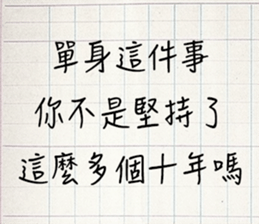 單身這件事
你不是堅持了
這麼多個十年嗎